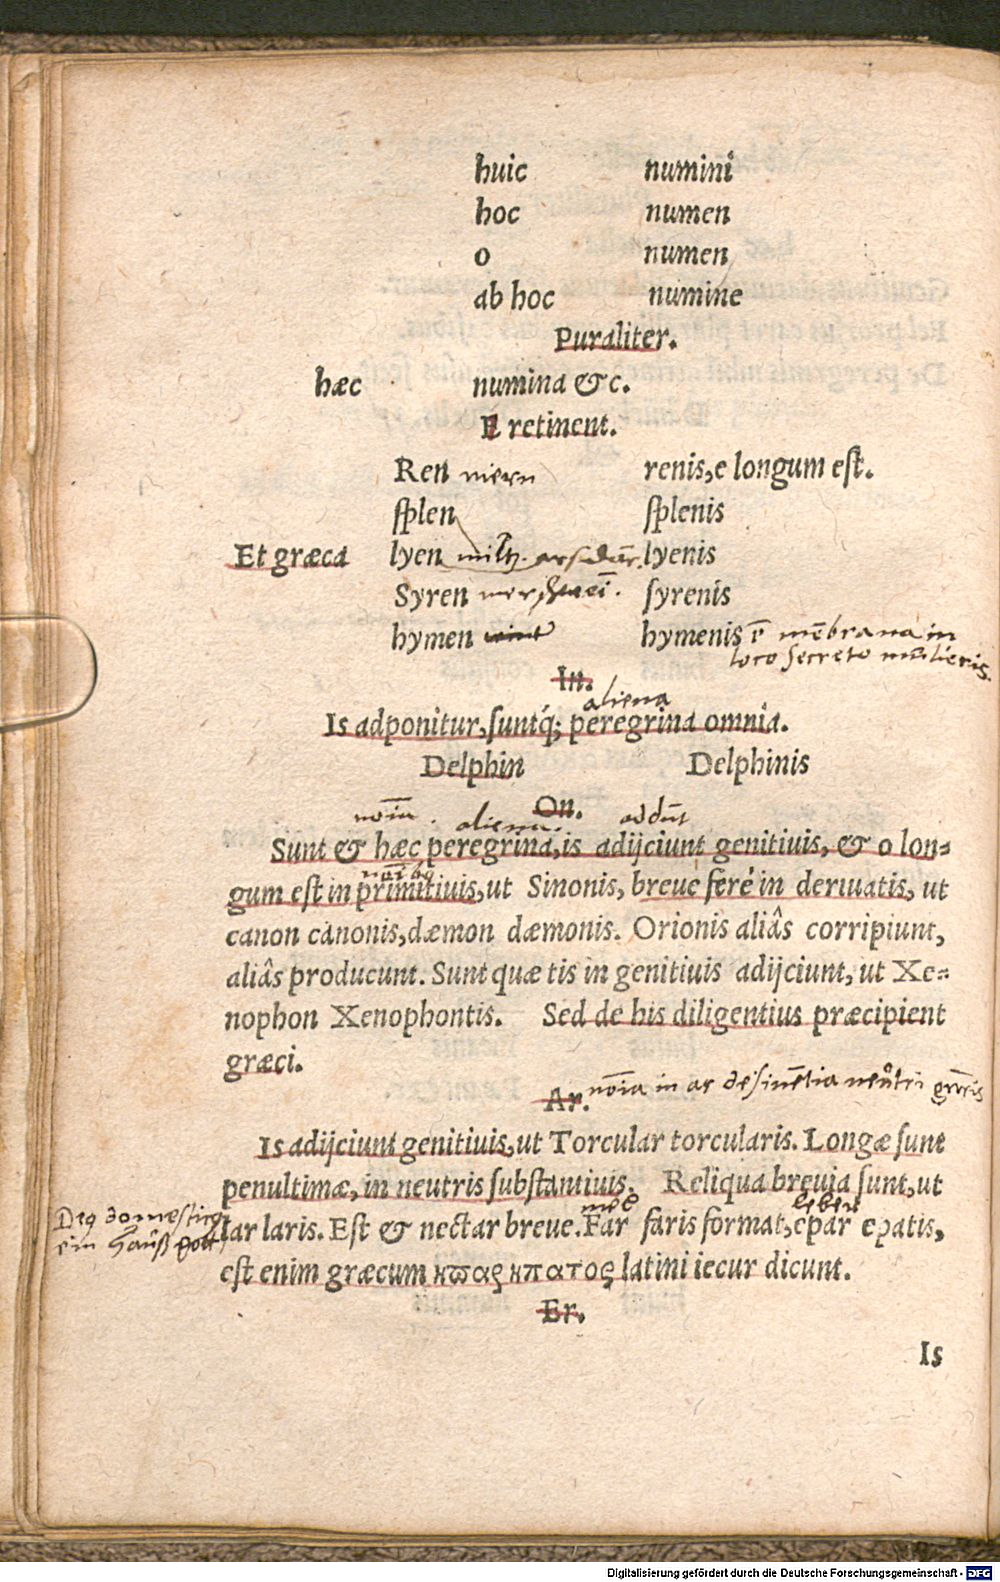 huic numini
hoc numen
o numen
ab hoc numine
Puraliter.
hæc numina &c.
E retinent.
Ren niern renis, e longum est.
ſplen ſplenis
Et græca lyen miltz lyenis
Syren ſyrenis
hymen hymenis membrana in
loco secreto mulieris
In.
aliena
Is adponitur, ſuntq́; peregrina omnia.
Delphin Delphinis
On.
noīa aliena. addūt
Sunt & hæc peregrina, is adijciunt genitiuis, & o lon-
gum est in primitiuis, ut Sinonis, breue ferè in deriuatis, ut
canon canonis, dæmon dæmonis. Orionis aliâs corripiunt,
aliâs producunt. Sunt quæ tis in genitiuis adijciunt, ut Xe-
nophon Xenophontis. Sed de his diligentius præcipient
græci.
Ar. noīa in ar desinētia neūtri gn̄ris
Is adijciunt genitiuis, ut Torcular torcularis. Longæ ſunt
penultimæ, in neutris ſubstantiuis. Reliqua breuia ſunt, ut
leber
Deq domestic
lar laris. Est & nectar breue. Far faris format, epar epatis,
ein hauß gott
est enim græcum ηπαρ ηπατος latini iecur dicunt.
Er.
Is
Digitalisierung gefördert durch die Deutsche Forschungsgemeinschaft - DFG